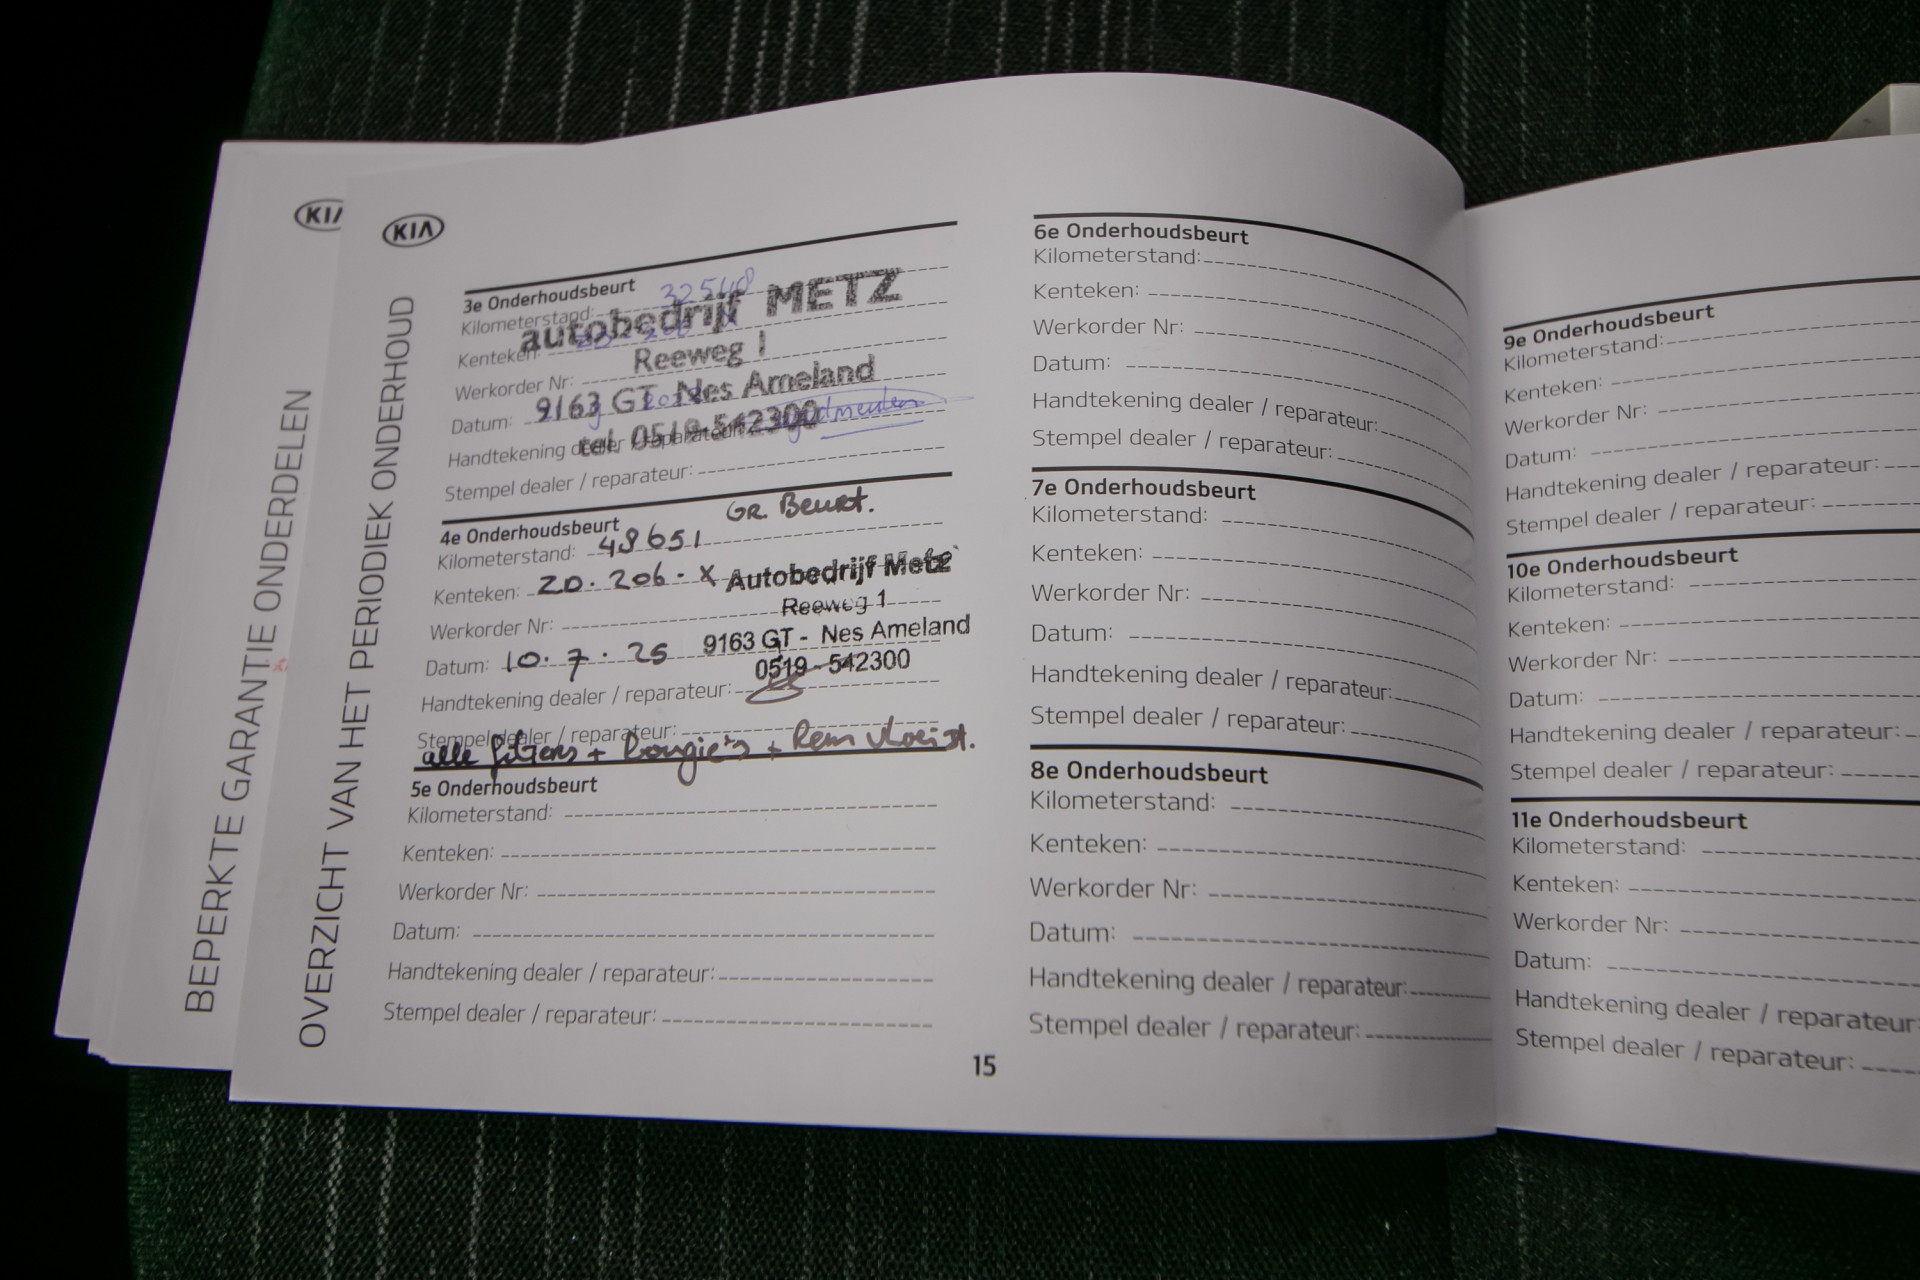 KIA
BEPERKTE GARANTIE ONDERDELEN
KIA
OVERZICHT VAN HET PERIODIEK ONDERHOUD
3e Onderhoudsbeurt
Kilometerstand: 32540
autobedrijf METZ
Kenteken:
Reeweg 1
Werkorder Nr:
9163 GT - Nes Ameland
Datum:
tel. 0519-542300
Handtekening dealer / reparateur:
Stempel dealer / reparateur:
4e Onderhoudsbeurt
GR. Beurt.
Kilometerstand: 49651
Kenteken: 20.206.X
Autobedrijf Metz
Reeweg 1
Werkorder Nr:
9163 GT - Nes Ameland
Datum: 10.7.25
0519 - 542300
Handtekening dealer / reparateur:
Stempel dealer / reparateur:
alle filters + Bougie's + Rem vloeist.
5e Onderhoudsbeurt
Kilometerstand:
Kenteken:
Werkorder Nr:
Datum:
Handtekening dealer / reparateur:
Stempel dealer / reparateur:
6e Onderhoudsbeurt
Kilometerstand:
Kenteken:
Werkorder Nr:
Datum:
Handtekening dealer / reparateur:
Stempel dealer / reparateur:
7e Onderhoudsbeurt
Kilometerstand:
Kenteken:
Werkorder Nr:
Datum:
Handtekening dealer / reparateur:
Stempel dealer / reparateur:
8e Onderhoudsbeurt
Kilometerstand:
Kenteken:
Werkorder Nr:
Datum:
Handtekening dealer / reparateur:
Stempel dealer / reparateur:
15
9e Onderhoudsbeurt
Kilometerstand:
Kenteken:
Werkorder Nr:
Datum:
Handtekening dealer / reparateur:
Stempel dealer / reparateur:
10e Onderhoudsbeurt
Kilometerstand:
Kenteken:
Werkorder Nr:
Datum:
Handtekening dealer / reparateur:
Stempel dealer / reparateur:
11e Onderhoudsbeurt
Kilometerstand:
Kenteken:
Werkorder Nr:
Datum:
Handtekening dealer / reparateur:
Stempel dealer / reparateur: